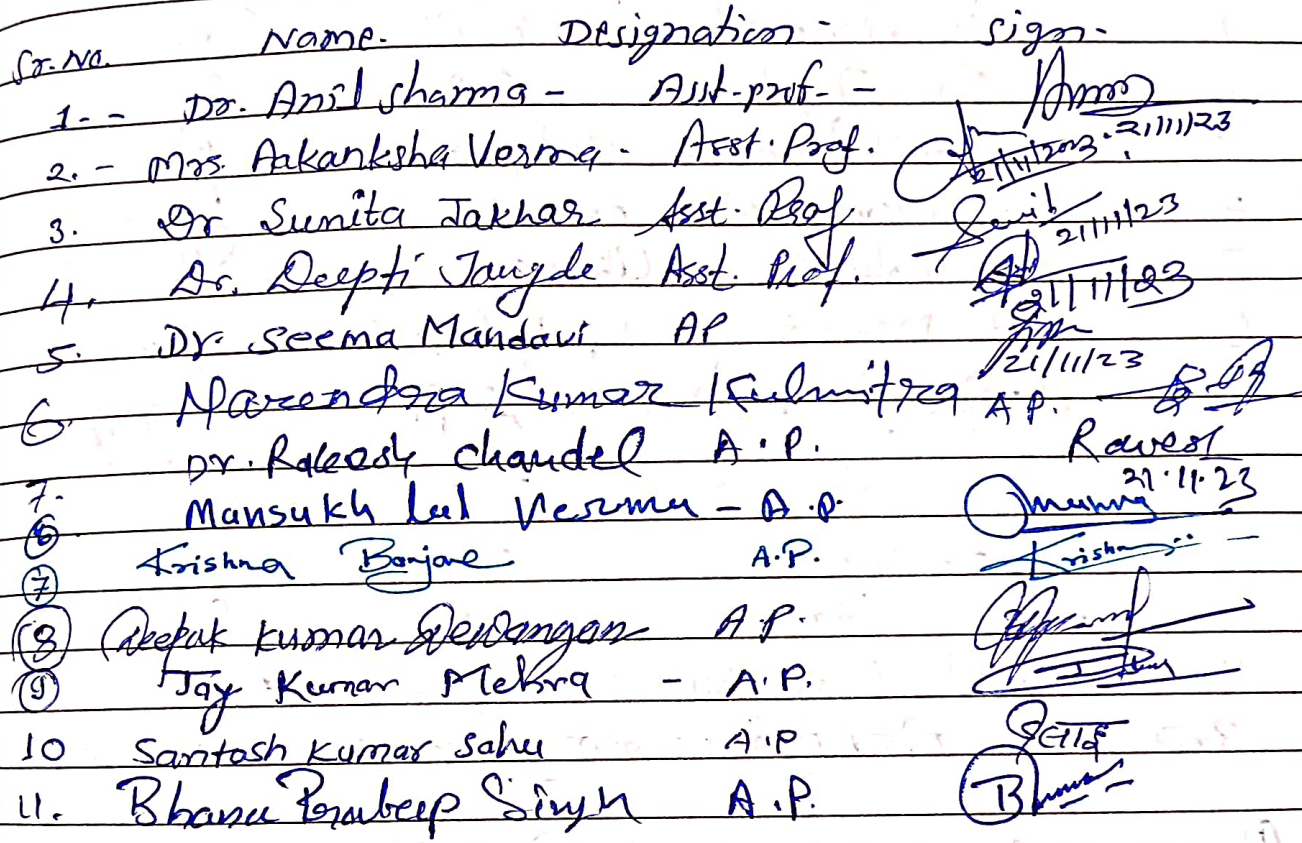 Sr. No. Name. Designation - Sign.
1. - - Dr. Anil Sharma - Asst-prof. -
21/11/23
2. - Mrs. Aakanksha Verma - Asst. Prof. 21/11/2023
3. Dr Sunita Jakhar Asst. Prof. 21/11/23
4. Dr. Deepti Jangde Asst. Prof. 21/11/23
5. Dr. Seema Mandavi AP 21/11/23
6 Narendra Kumar Kulmitra A.P.
7. Dr. Rakesh Chandel A.P. 21.11.23
6 Mansukh Lal Verma - A.P.
7 Krishna Banjare A.P. Krishna
8 Deepak Kumar Dewangan A.P.
9 Jay Kumar Mehra - A.P.
10 Santosh Kumar Sahu A.P
11. Bhanu Pratap Singh A.P.